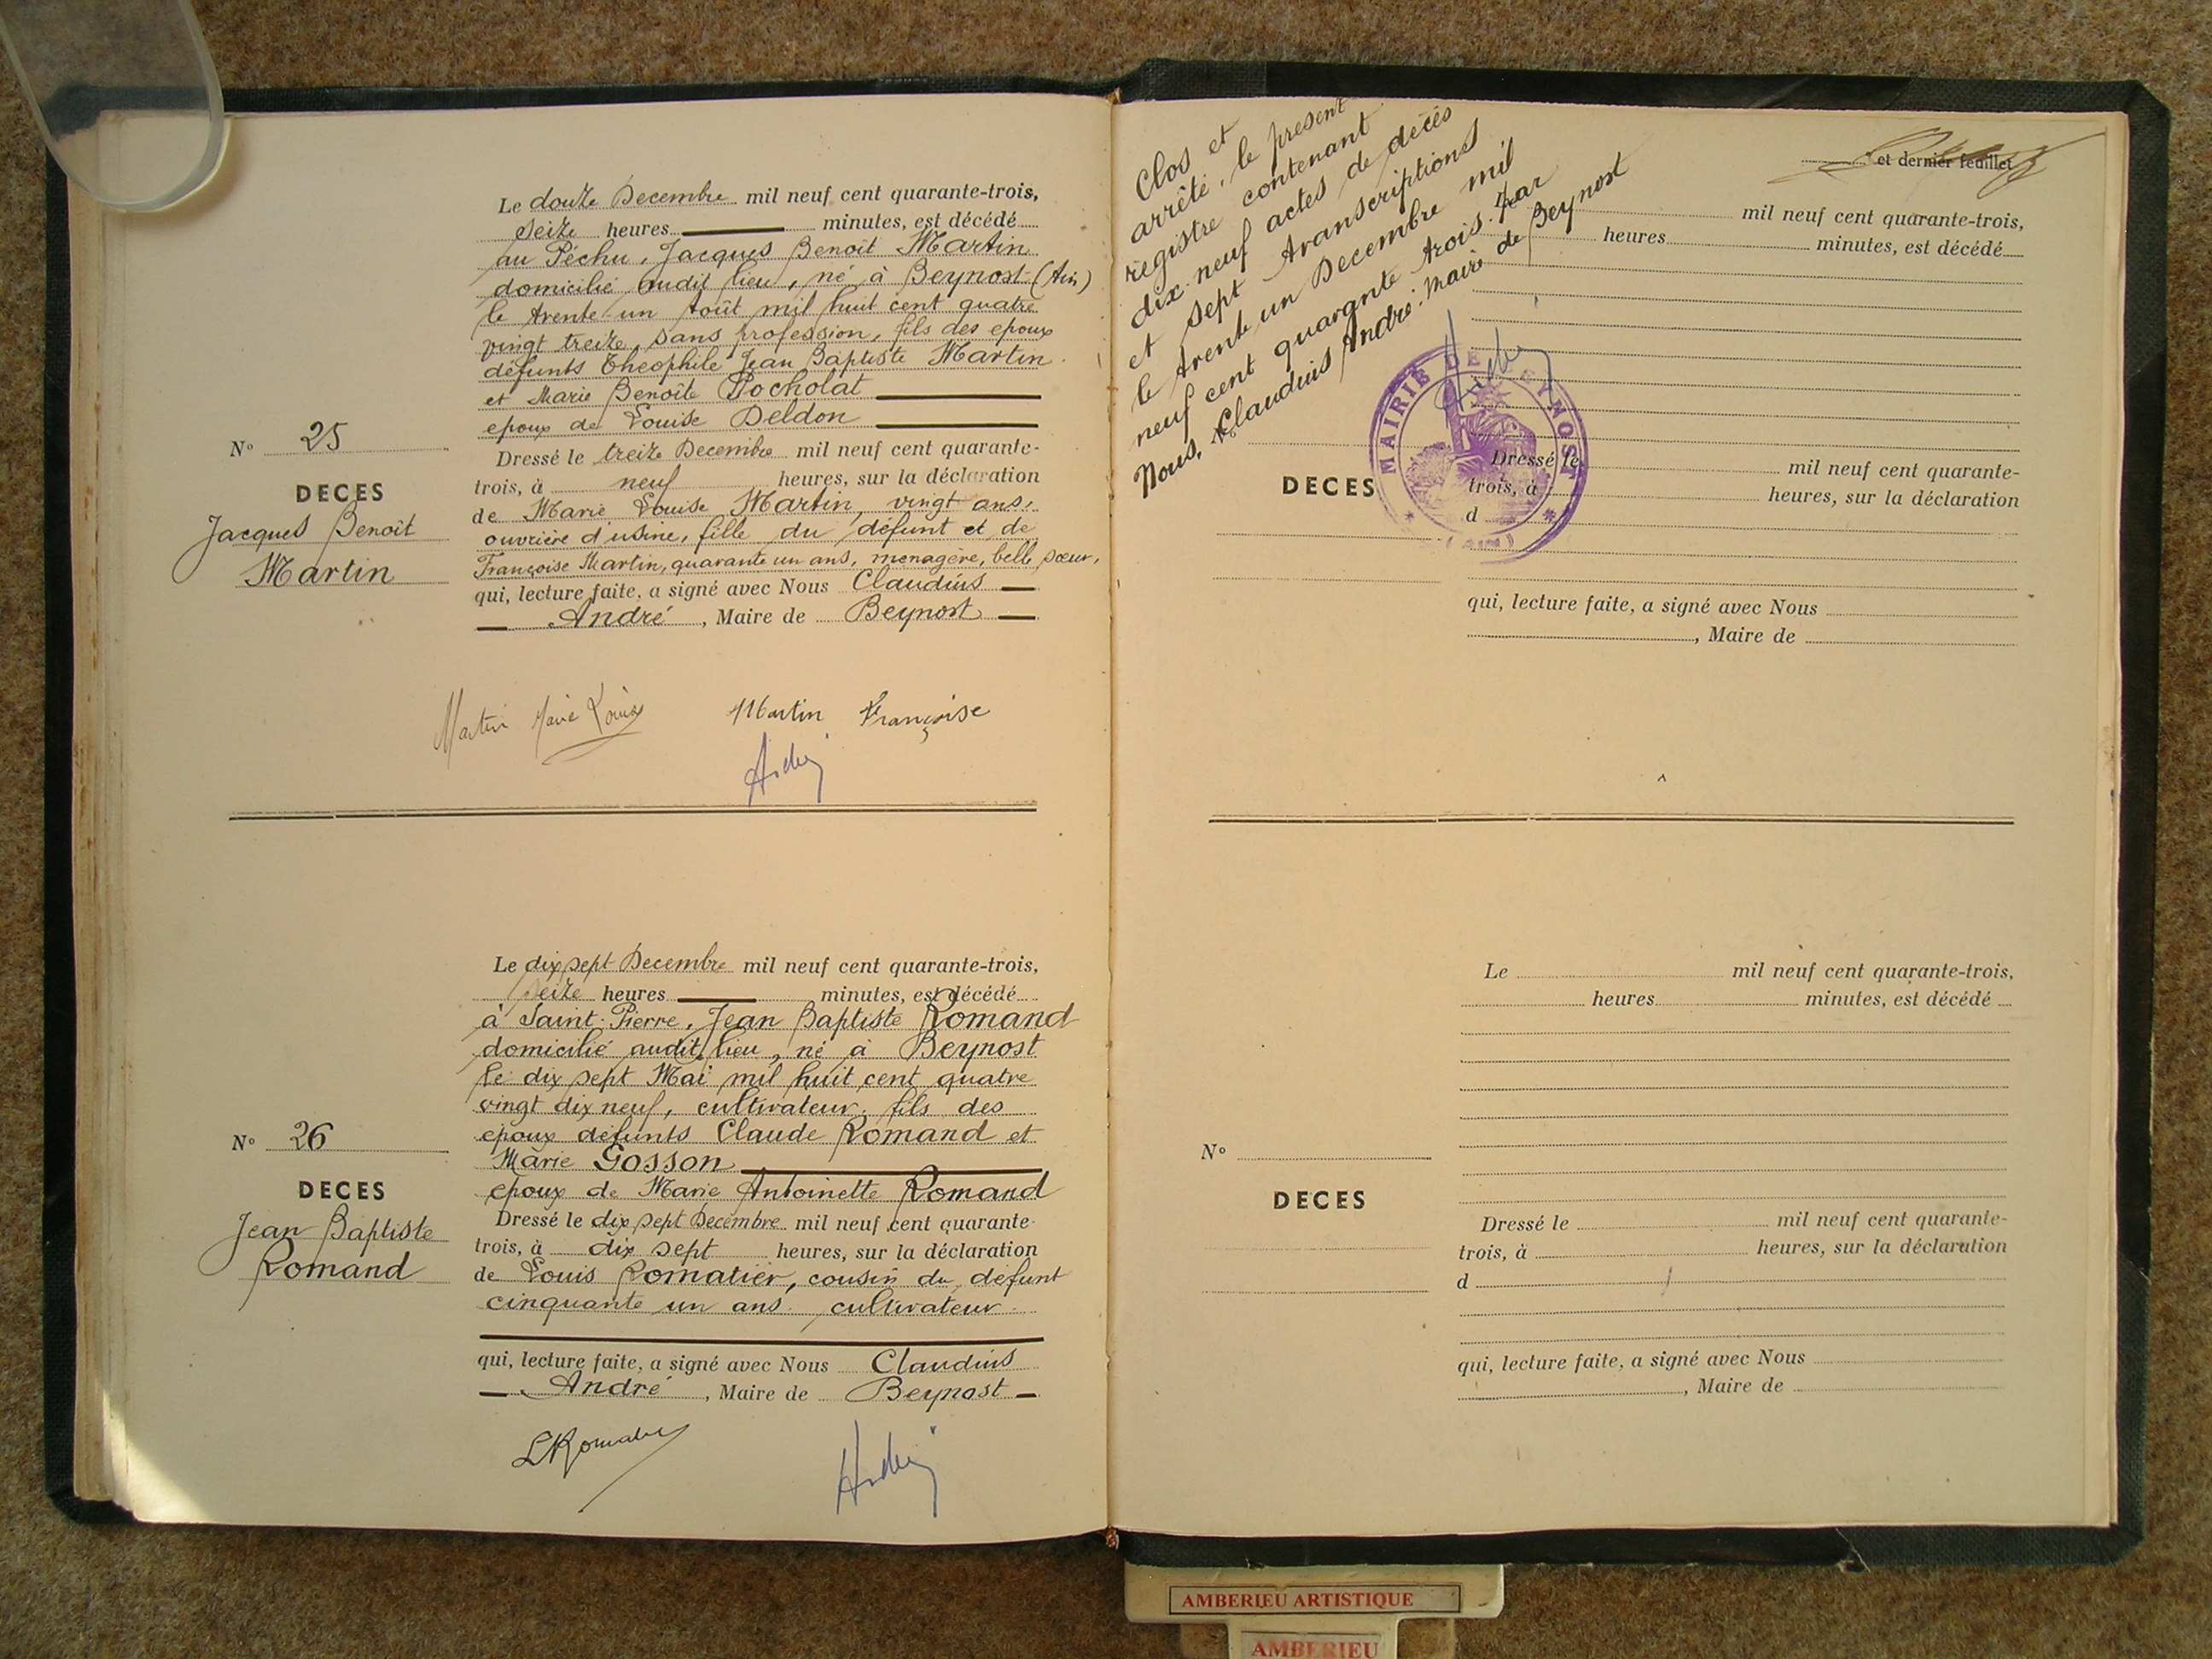 Le douze Decembre mil neuf cent quarante-trois,
seize heures minutes, est décédé
au Péchu, Jacques Benoit Martin
domicilié audit lieu, né à Beynost (Ain)
le trente un Août mil huit cent quatre
vingt treize, sans profession, fils des epoux
défunts Théophile Jean Baptiste Martin
et Marie Benoîte Pocholat
epoux de Louise Deldon
Nº 25
DECES
Jacques Benoit
Martin
Dressé le treize Decembre mil neuf cent quarante-
trois, à neuf heures, sur la déclaration
de Marie Louise Martin, vingt ans,
ouvrière d'usine, fille du défunt et de
Françoise Martin, quarante un ans, menagère, belle sœur,
qui, lecture faite, a signé avec Nous Claudius
André, Maire de Beynost
Martin Marie Louise Martin Françoise
André
Le dix sept Decembre mil neuf cent quarante-trois,
seize heures minutes, est décédé
à Saint-Pierre, Jean Baptiste Romand
domicilié audit lieu, né à Beynost
le dix sept Mai mil huit cent quatre
vingt dix neuf, cultivateur, fils des
epoux défunts Claude Romand et
Marie Gosson
epoux de Marie Antoinette Romand
Nº 26
DECES
Jean Baptiste
Romand
Dressé le dix sept Decembre mil neuf cent quarante-
trois, à dix sept heures, sur la déclaration
de Louis Romatier, cousin du défunt
cinquante un ans, cultivateur
qui, lecture faite, a signé avec Nous Claudius
André, Maire de Beynost
LRomatier
André
Clos et
arrêté, le présent
registre contenant
dix neuf actes de décés
et sept transcriptions
le trente un Decembre mil
neuf cent quarante trois. par
Nous, Claudius André. Maire de Beynost
et dernier feuillet
mil neuf cent quarante-trois,
heures minutes, est décédé
MAIRIE DE BEYNOST
(AIN)
DECES
Dressé le mil neuf cent quarante-
trois, à heures, sur la déclaration
d
qui, lecture faite, a signé avec Nous
, Maire de
Le mil neuf cent quarante-trois,
heures minutes, est décédé
Nº
DECES
Dressé le mil neuf cent quarante-
trois, à heures, sur la déclaration
d
qui, lecture faite, a signé avec Nous
, Maire de
AMBERIEU ARTISTIQUE
AMBERIEU